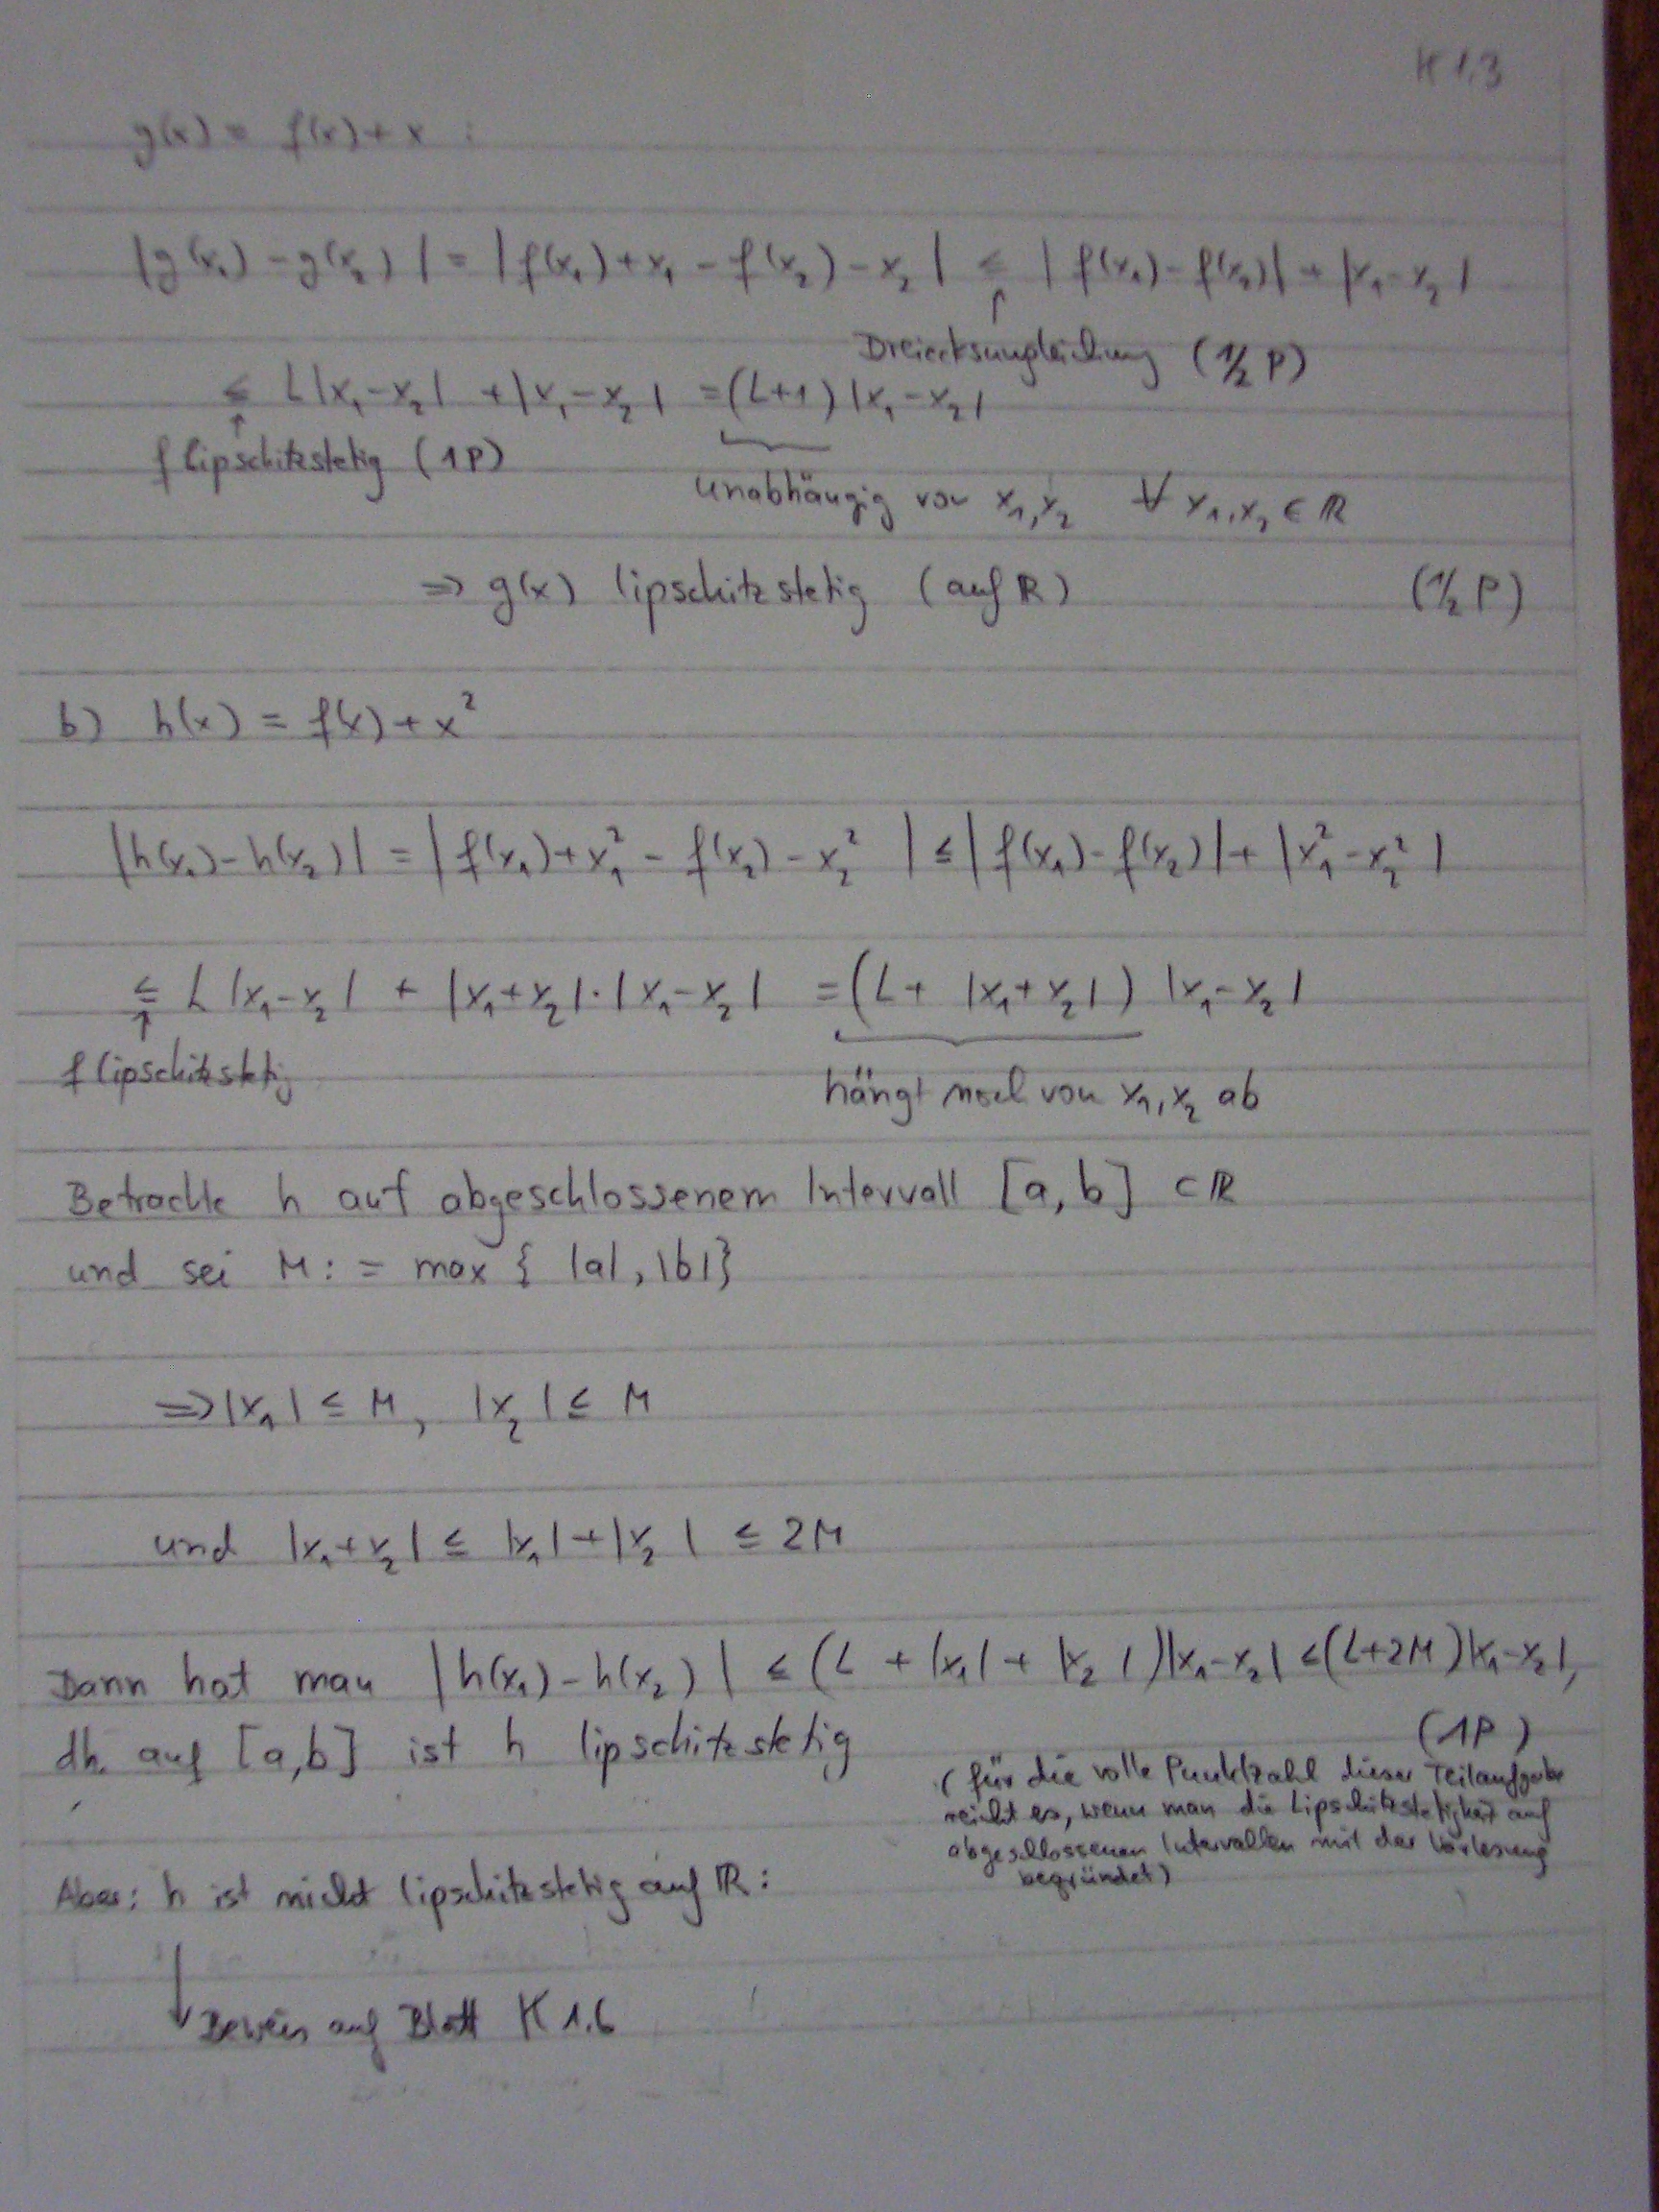 K 1.3
g(x) = f(x) + x :
|g(x₁) - g(x₂)| = |f(x₁) + x₁ - f(x₂) - x₂| ≤ |f(x₁) - f(x₂)| + |x₁ - x₂|
↑
Dreiecksungleichung (1/2 P)
≤ L|x₁ - x₂| + |x₁ - x₂| = (L+1) |x₁ - x₂|
↑
f lipschitzstetig (1P)
unabhängig von x₁, x₂ ∀ x₁, x₂ ∈ ℝ
⇒ g(x) lipschitzstetig (auf ℝ) (1/2 P)
b) h(x) = f(x) + x²
|h(x₁) - h(x₂)| = |f(x₁) + x₁² - f(x₂) - x₂² | ≤ |f(x₁) - f(x₂)| + |x₁² - x₂²|
≤ L |x₁ - x₂| + |x₁ + x₂| · |x₁ - x₂| = (L + |x₁ + x₂|) |x₁ - x₂|
↑
f lipschitzstetig
hängt noch von x₁, x₂ ab
Betrachte h auf abgeschlossenem Intervall [a, b] ⊂ ℝ
und sei M := max { |a|, |b| }
⇒ |x₁| ≤ M, |x₂| ≤ M
und |x₁ + x₂| ≤ |x₁| + |x₂| ≤ 2M
Dann hat man |h(x₁) - h(x₂)| ≤ (L + |x₁| + |x₂|)|x₁ - x₂| ≤ (L+2M)|x₁ - x₂|,
dh. auf [a,b] ist h lipschitzstetig (1P)
(für die volle Punktzahl dieser Teilaufgabe
reicht es, wenn man die Lipschitzstetigkeit auf
abgeschlossenen Intervallen mit der Vorlesung
begründet)
Aber: h ist nicht lipschitzstetig auf ℝ:
↓ Beweis auf Blatt K 1.6